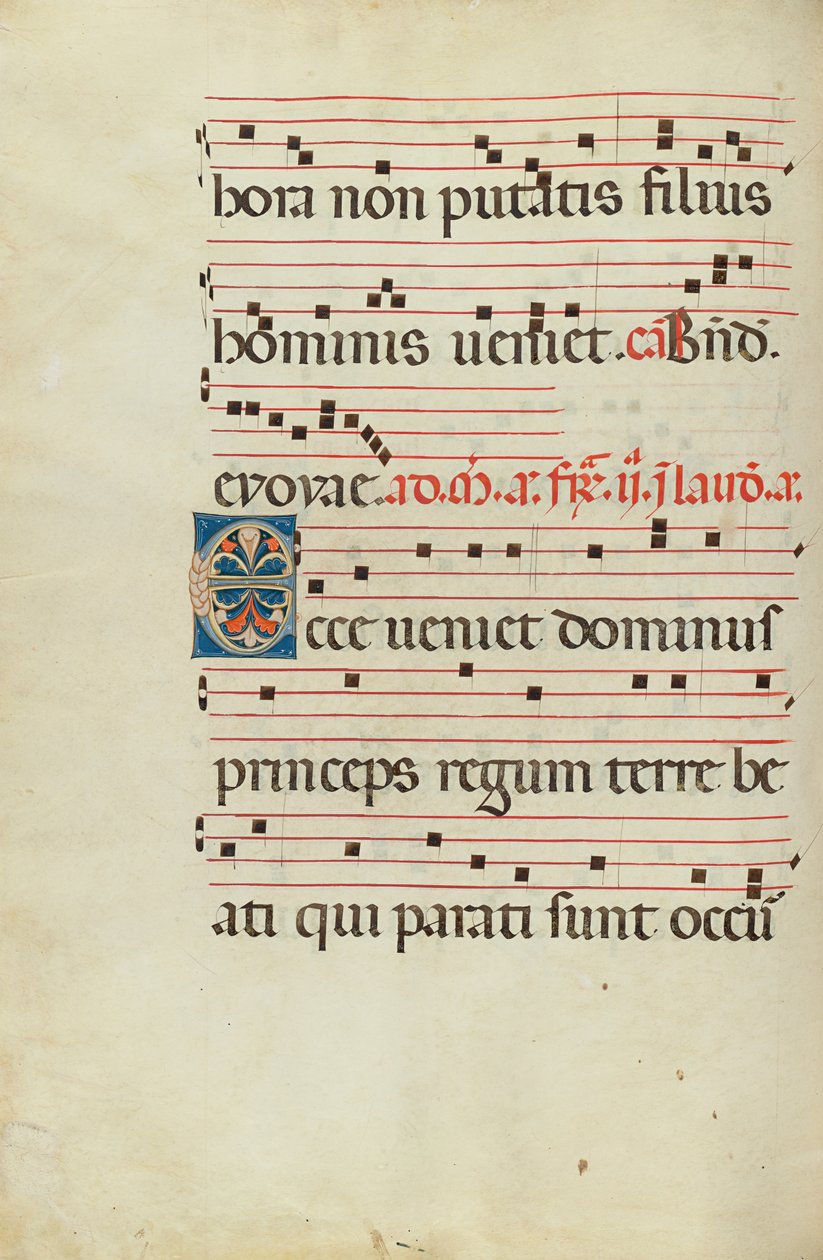 hora non putatis filius
hominis ueniet. cā Bn̄d̄.
evovae. ad. m̄. a. fr̄a. ij. j laud̄. a.
Ecce ueniet dominus
princeps regum terre be
ati qui parati sunt occu